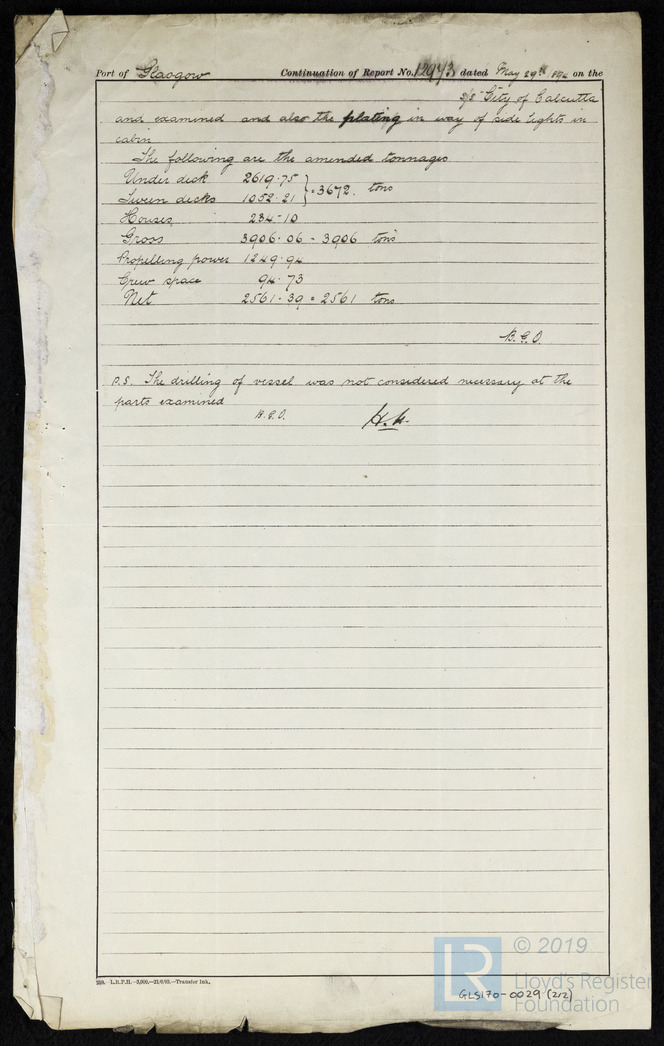 Port of Glasgow Continuation of Report No. 12973 dated May 29th 1894 on the
s/s City of Calcutta
and examined and also the plating in way of side lights in
cabin
The following are the amended tonnages
Under deck 2619.75
Tween decks 1052.21 } = 3672. tons
Houses 234-10
Gross 3906.06 = 3906 tons
Propelling power 1249.94
Crew space 94.73
Net 2561.39 = 2561 tons
B.G.O.
P.S. The drilling of vessel was not considered necessary at the
parts examined
B.G.O.
L.R.P.H.—3,000.—21/6/93.—Transfer Ink.
LR © 2019
Lloyd's Register
Foundation
GLS170-0029 (2/2)